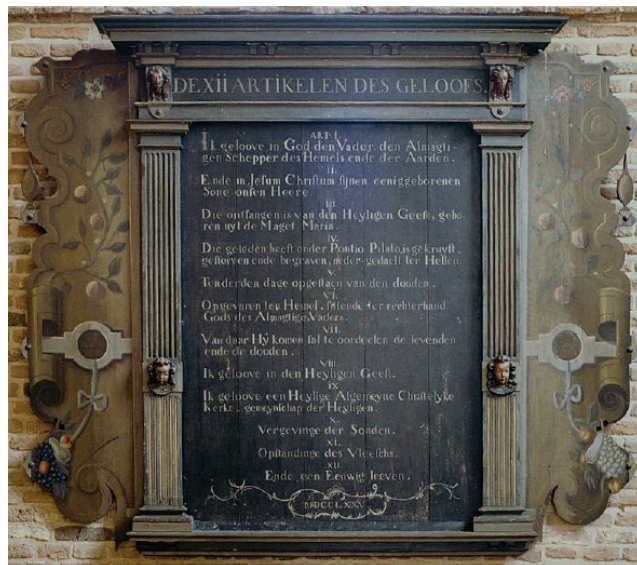 DE XII ARTIKELEN DES GELOOFS.
ART I.
Ik geloove in God den Vader den Almagti-
gen Schepper des Hemels ende der Aarden.
II.
Ende in Jesum Christum sijnen eeniggeborenen
Sone onsen Heere.
III.
Die ontfangen is van den Heyligen Geest, gebo-
ren uyt de Maget Maria.
IV.
Die geleden heeft onder Pontio Pilato, is gekruyst,
gestorven ende begraven, neder-gedaelt ter Hellen.
V.
Ten derden dage opgestaen van den dooden.
VI.
Opgevaren ten Hemel, sittende ter rechterhand
Gods des Almagtige Vaders.
VII.
Van daar Hy komen sal te oordeelen de levenden
ende de dooden.
VIII
Ik geloove in den Heyligen Geest.
IX
Ik geloove een Heylige Algemeyne Christelyke
Kerke, gemeynschap der Heyligen.
X.
Vergevinge der Sonden.
XI.
Opstandinge des Vleeschs.
XII.
Ende een Eeuwig leeven.
MDCCLXXV